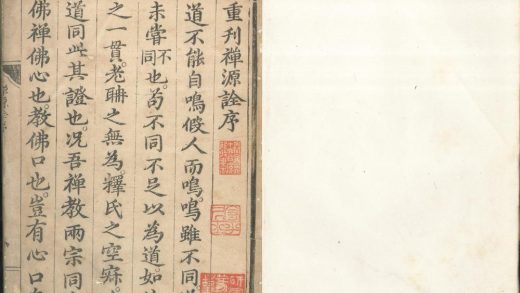 重刊禪源詮序
道不能自鳴假人而鳴鳴雖不同
未甞不同也。苟不同不足以為道如
之一貫。老聃之無為。釋氏之空寂
道同此其證也。况吾禪教兩宗同
佛禪佛心也。教佛口也。豈有心口